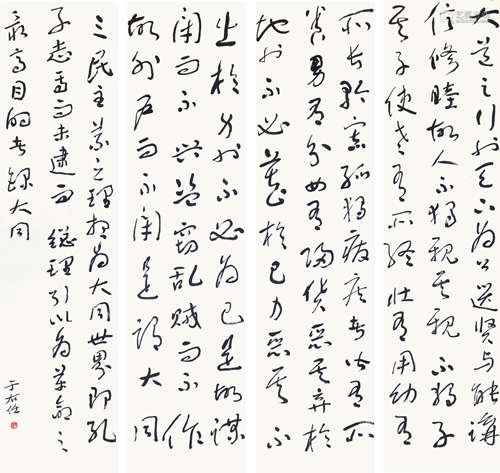 大道之行也天下为公選賢与能講
信修睦故人不獨親其親不獨子
其子使老有所終壮有用幼有
所長鰥寡孤獨廢疾者皆有所
養男有分女有歸貨惡其弃於
地也不必藏於己力惡其不
出於身也不必為己是故謀
闭而不興盜竊亂賊而不作
故外户而不闭是謂大同
三民主義之理想為大同世界即孔
子志焉而未逮而總理引以為革命之
最高目的者錄大同
于右任